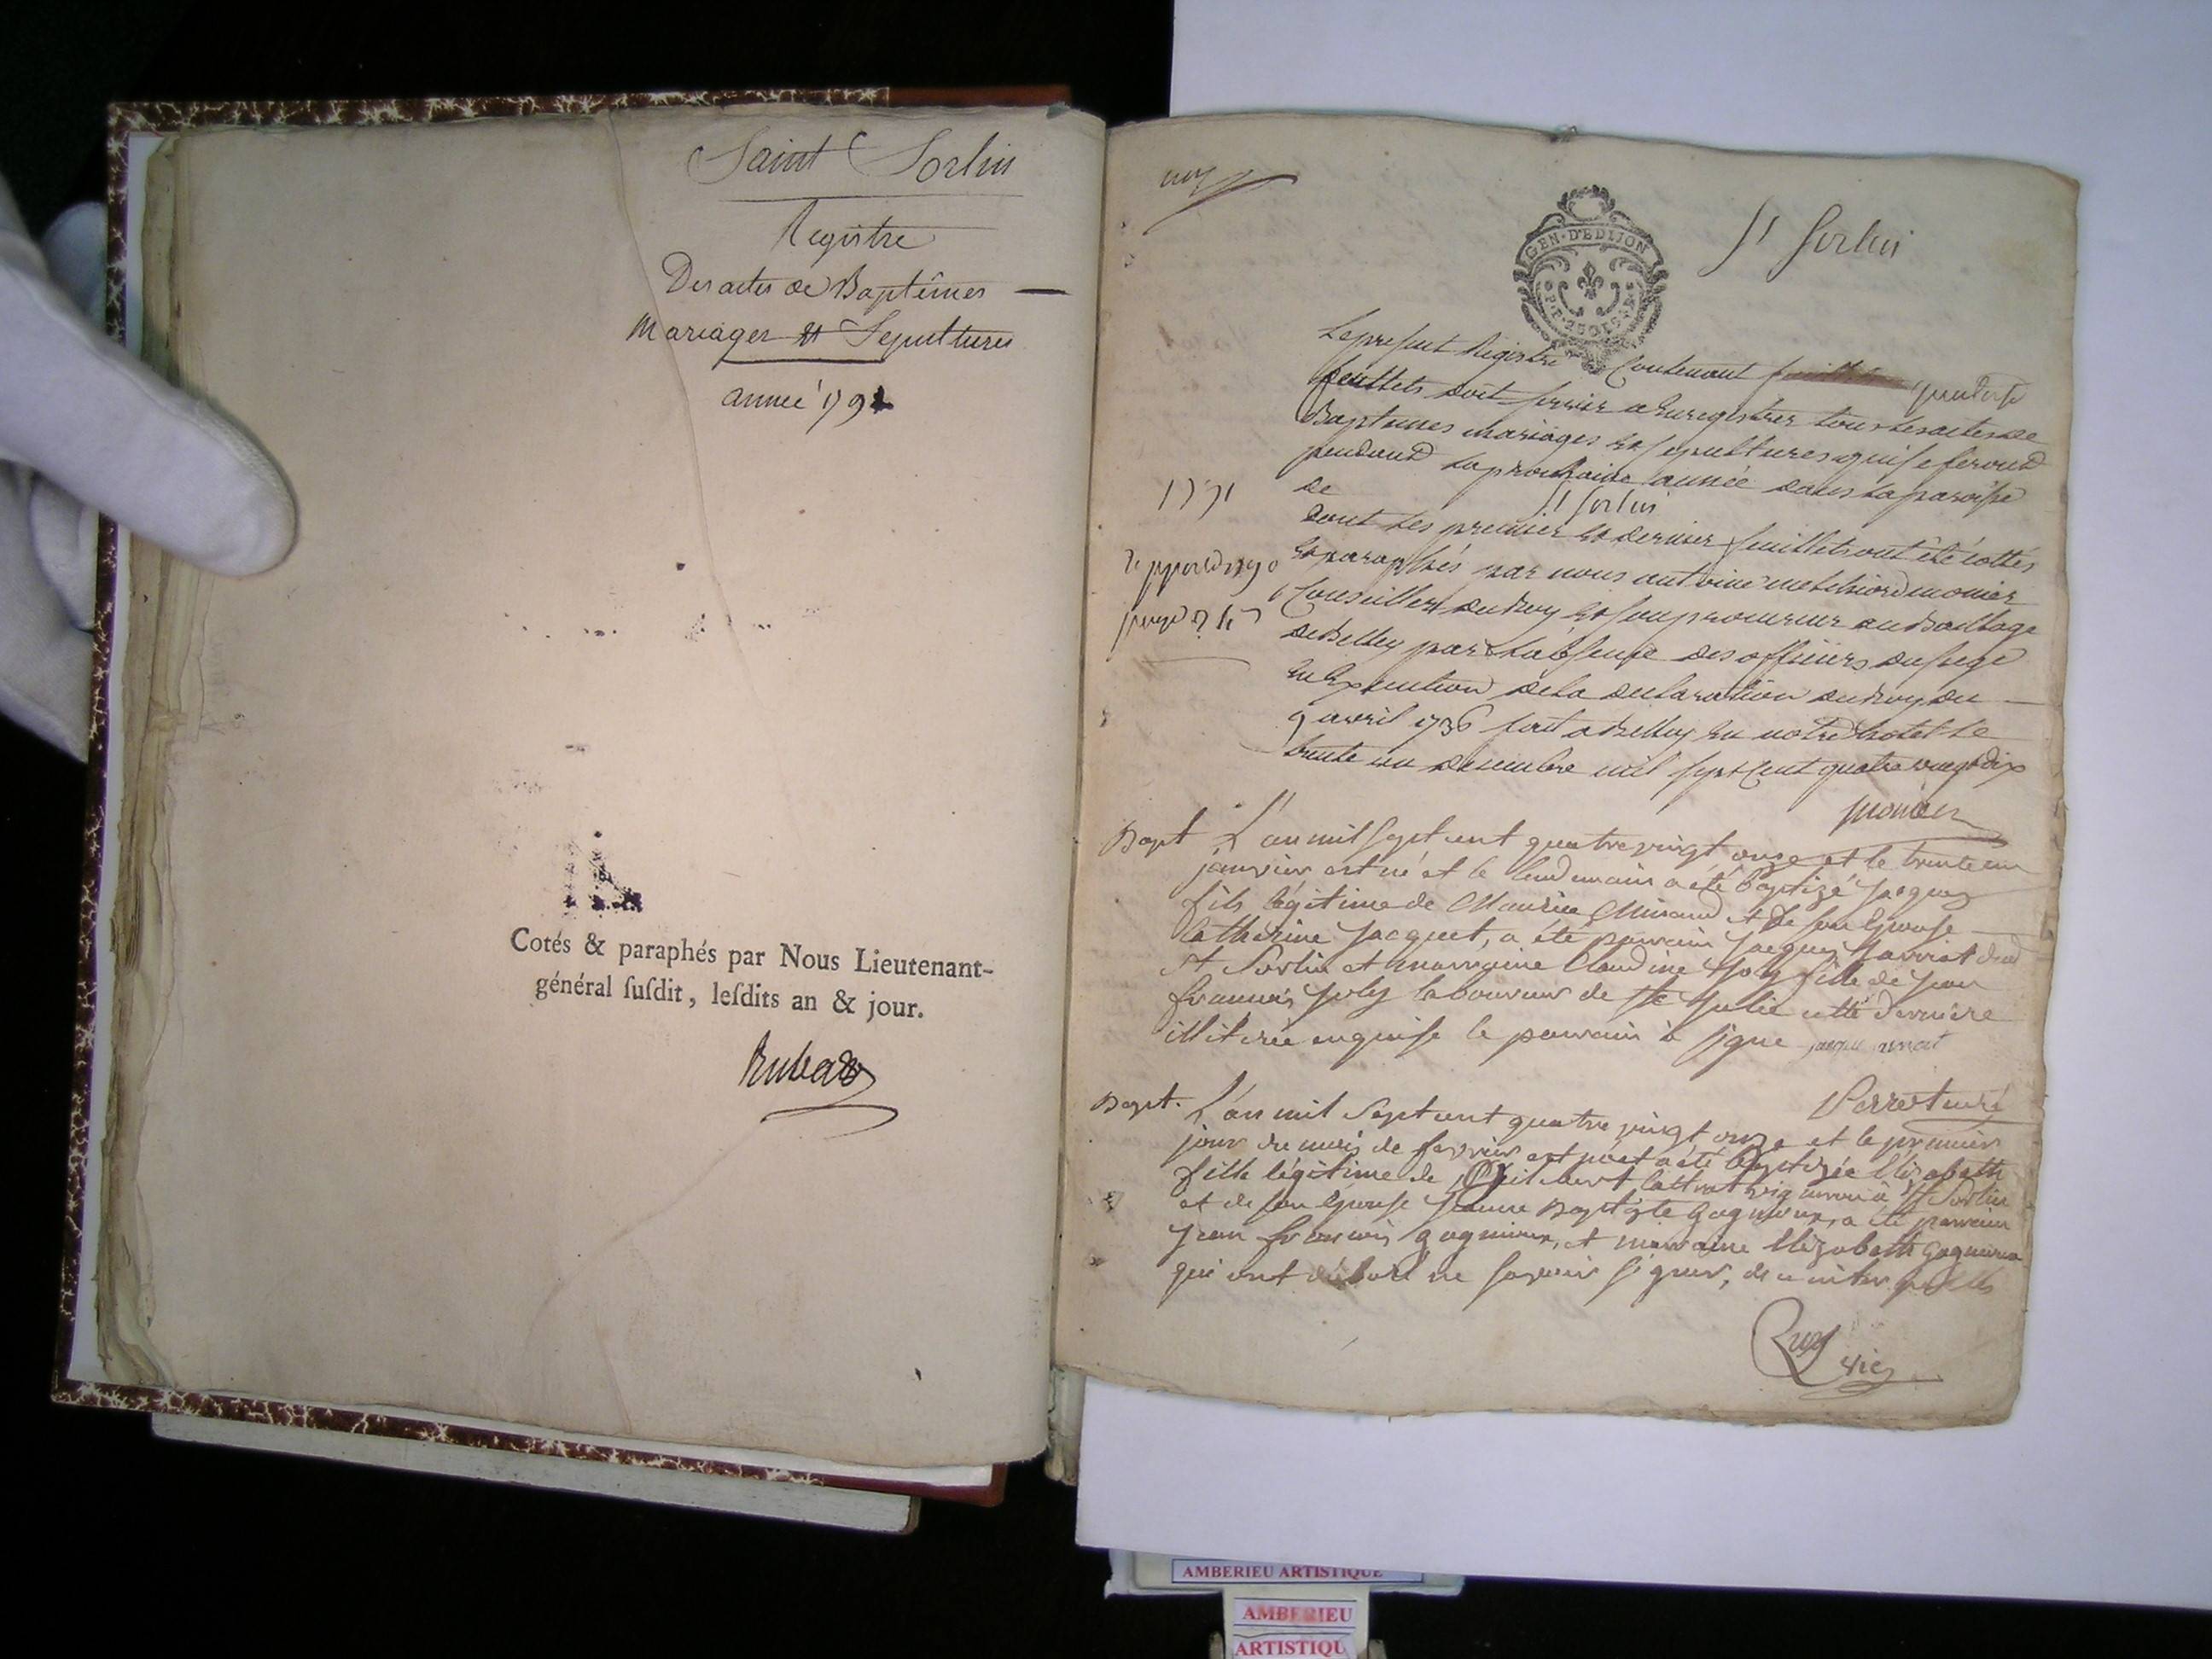 Saint Sorlin
Registre
Des actes de Baptêmes —
Mariages et Sepultures
année 1791
Cotés & paraphés par Nous Lieutenant-
général susdit, lesdits an & jour.
GEN·D'EDIJON
St Sorlin
Le present Registre Contenant quatorse
feuillets doit servir a Enregistrer tous les actes de
Baptemes mariages et sepultures qui se feront
pendant la prochaine année dans la paroisse
de St Sorlin
dont les premier et dernier feuillets ont été cottés
et paraphés par nous antoine melchior monier
Conseiller du Roy et son procureur au Bailliage
de Belley par l'absence des officiers du siege
en Execution de la declaration du Roy du —
9 avril 1736 fait a Belley en notre hotel le
trente un decembre mil sept cent quatre vingt dix
monier
Bapt L'an mil sept cent quatre vingt onze et le trente un
janvier est né et le lendemain a été baptizé Jacques
fils légitime de Maurice et de son Epouse —
Catherine Jacquet, a été parrain Jacques
St Sorlin et marraine Claudine Joly fille de Jean
francois Joly laboureur de Ste Julie cette derniere
illitérée enquise le parrain à signé
Bapt. L'an mil sept cent quatre vingt onze et le premier
jour du mois de fevrier est née et a été baptizée Elizabeth
fille légitime de vigneron à St Sorlin
et de son Epouse Jeanne Baptiste Gagneux, a été parrain
Jean francois gagneux, et marraine Elizabeth Gagneux
qui ont déclaré ne savoir signer, de ce